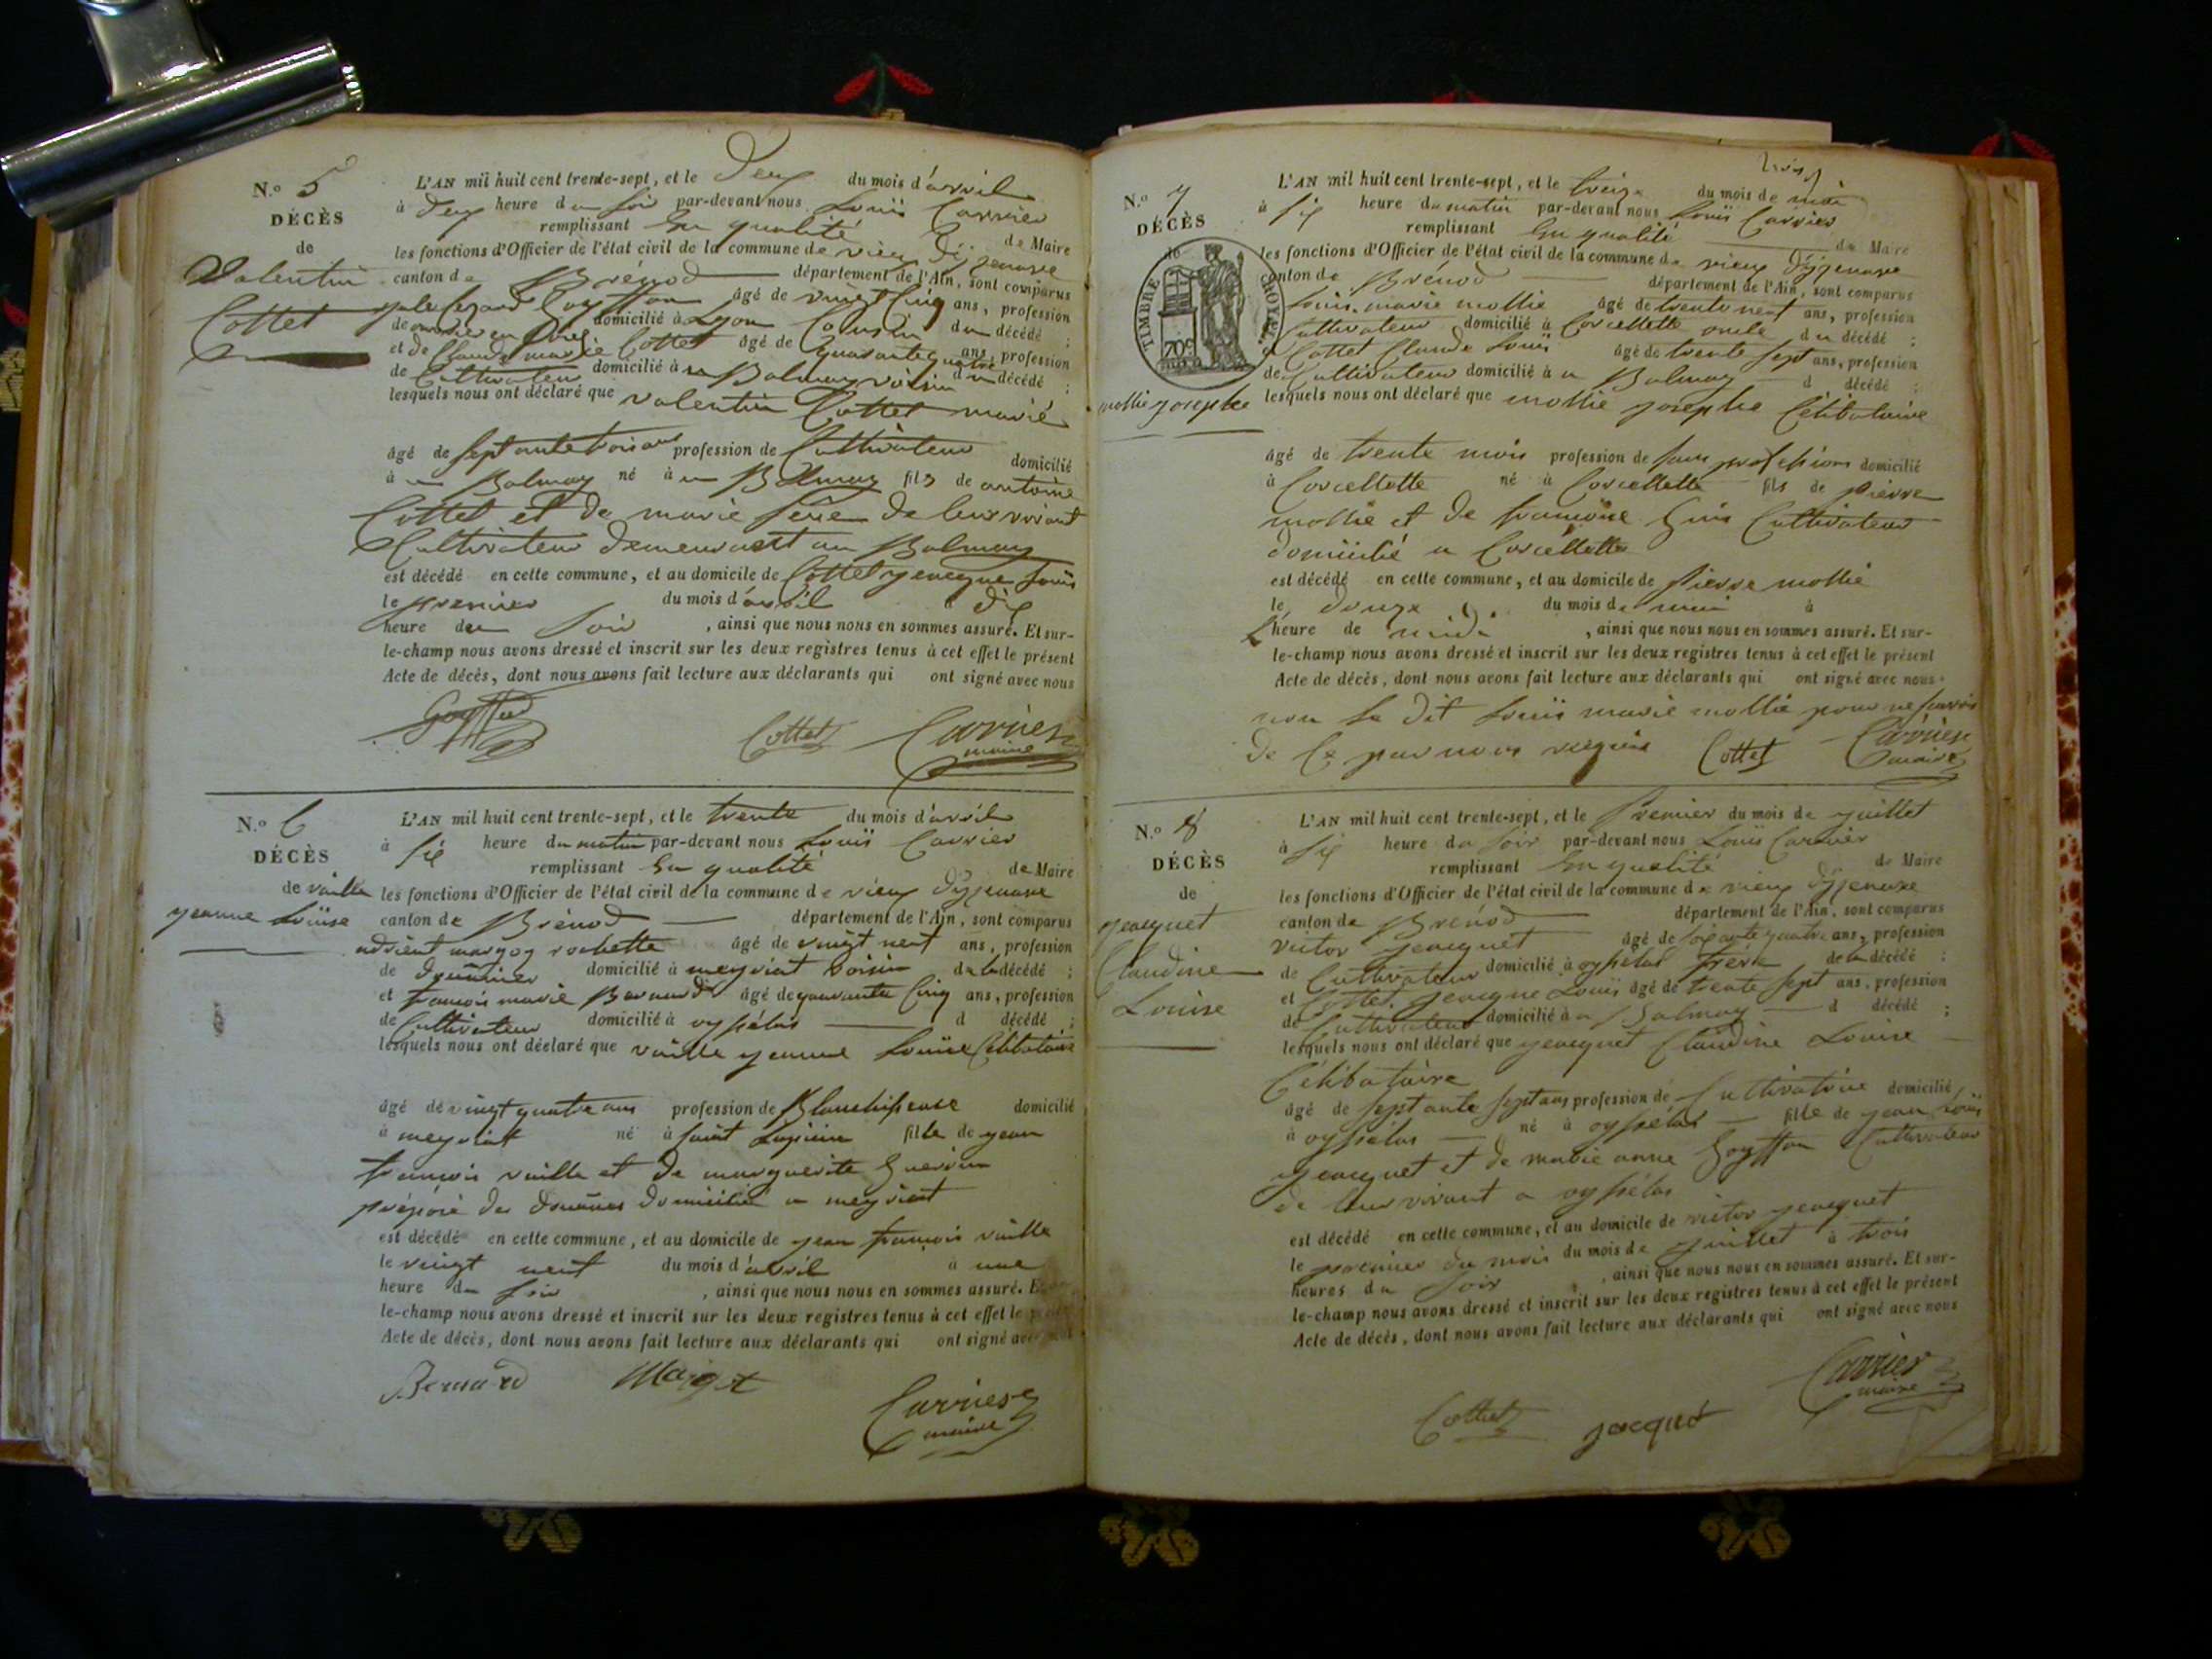 N.o 5
DÉCÈS
de
Valentin
Cottet
L'AN mil huit cent trente-sept, et le deux du mois d'avril
à deux heure du soir par-devant nous Louis Carrier
remplissant En qualité de Maire
les fonctions d'Officier de l'état civil de la commune de vieux d'izenave
canton de Brénod département de l'Ain, sont comparus
Goyffon âgé de vingt Cinq ans, profession
de domicilié à Lyon Cousin du décédé ;
et de Claude marie Cottet âgé de quarante quatre ans, profession
de Cultivateur domicilié à Balmay voisin du décédé ;
lesquels nous ont déclaré que valentin Cottet marié
âgé de septante trois ans profession de Cultivateur domicilié
à Balmay né à Balmay fils de antoine
Cottet et de marie de leur vivant
Cultivateur demeurant au Balmay
est décédé en cette commune, et au domicile de Cottet Louis
le premier du mois d'avril à dix
heure du soir , ainsi que nous nous en sommes assuré. Et sur-
le-champ nous avons dressé et inscrit sur les deux registres tenus à cet effet le présent
Acte de décès, dont nous avons fait lecture aux déclarants qui ont signé avec nous
Goyffon Cottet Carrier
maire
N.o 6
DÉCÈS
de vuille
jeanne Louise
L'AN mil huit cent trente-sept, et le trente du mois d'avril
à six heure du matin par-devant nous Louis Carrier
remplissant En qualité de Maire
les fonctions d'Officier de l'état civil de la commune de vieux d'izenave
canton de Brénod département de l'Ain, sont comparus
rochette âgé de vingt neuf ans, profession
de douanier domicilié à meyriat voisin de la décédé ;
et françois marie Bernard âgé de quarante Cinq ans, profession
de Cultivateur domicilié à oyssélas d décédé ;
lesquels nous ont déclaré que vuille jeanne Louise Célibataire
âgé de vingt quatre ans profession de Blanchisseuse domicilié
à meyriat né à saint fille de jean
françois vuille et de marguerite Guerin
préposé des douanes domicilié a meyriat
est décédé en cette commune, et au domicile de jean françois vuille
le vingt neuf du mois d'avril à une
heure du soir , ainsi que nous nous en sommes assuré. Et
le-champ nous avons dressé et inscrit sur les deux registres tenus à cet effet le
Acte de décès, dont nous avons fait lecture aux déclarants qui ont signé avec
Bernard Margot
Carrier
maire
N.o 7
DÉCÈS
de
TIMBRE ROYAL
70c
mollie josephe
L'AN mil huit cent trente-sept, et le treize du mois de mai
à six heure du matin par-devant nous Louis Carrier
remplissant En qualité de Maire
les fonctions d'Officier de l'état civil de la commune de vieux d'izenave
canton de Brénod département de l'Ain, sont comparus
Louis marie mollie âgé de trente neuf ans, profession
Cultivateur domicilié à Corcellette oncle du décédé ;
Cottet Claude Louis âgé de trente sept ans, profession
de Cultivateur domicilié à Balmay d décédé ;
lesquels nous ont déclaré que mollie josephe Célibataire
âgé de trente mois profession de sans profession domicilié
à Corcellette né à Corcellette fils de pierre
mollie et de françoise Cultivateur
domicilié a Corcellette
est décédé en cette commune, et au domicile de pierre mollie
le douze du mois de mai à
L'heure de midi , ainsi que nous nous en sommes assuré. Et sur-
le-champ nous avons dressé et inscrit sur les deux registres tenus à cet effet le présent
Acte de décès, dont nous avons fait lecture aux déclarants qui ont signé avec nous
non le dit Louis marie mollie pour ne savoir
de Ce par nous requis Cottet Carrier
maire
N.o 8
DÉCÈS
de
jacquet
Claudine
Louise
L'AN mil huit cent trente-sept, et le premier du mois de juillet
à six heure du soir par-devant nous Louis Carrier
remplissant En qualité de Maire
les fonctions d'Officier de l'état civil de la commune de vieux d'izenave
canton de Brénod département de l'Ain, sont comparus
victor jacquet âgé de soixante quatre ans, profession
de Cultivateur domicilié à oyssélas frère de la décédé ;
et Cottet Louis âgé de trente sept ans, profession
de Cultivateur domicilié à Balmay d décédé ;
lesquels nous ont déclaré que jacquet Claudine Louise
Célibataire
âgé de septante sept ans profession de Cultivatrice domicilié
à oyssélas né à oyssélas fille de jean Louis
jacquet et de marie anne Goyffon Cultivateur
de leur vivant a oyssélas
est décédé en cette commune, et au domicile de victor jacquet
le premier du mois du mois de juillet à trois
heures du soir , ainsi que nous nous en sommes assuré. Et sur-
le-champ nous avons dressé et inscrit sur les deux registres tenus à cet effet le présent
Acte de décès, dont nous avons fait lecture aux déclarants qui ont signé avec nous
Carrier
maire
Cottet jacquet